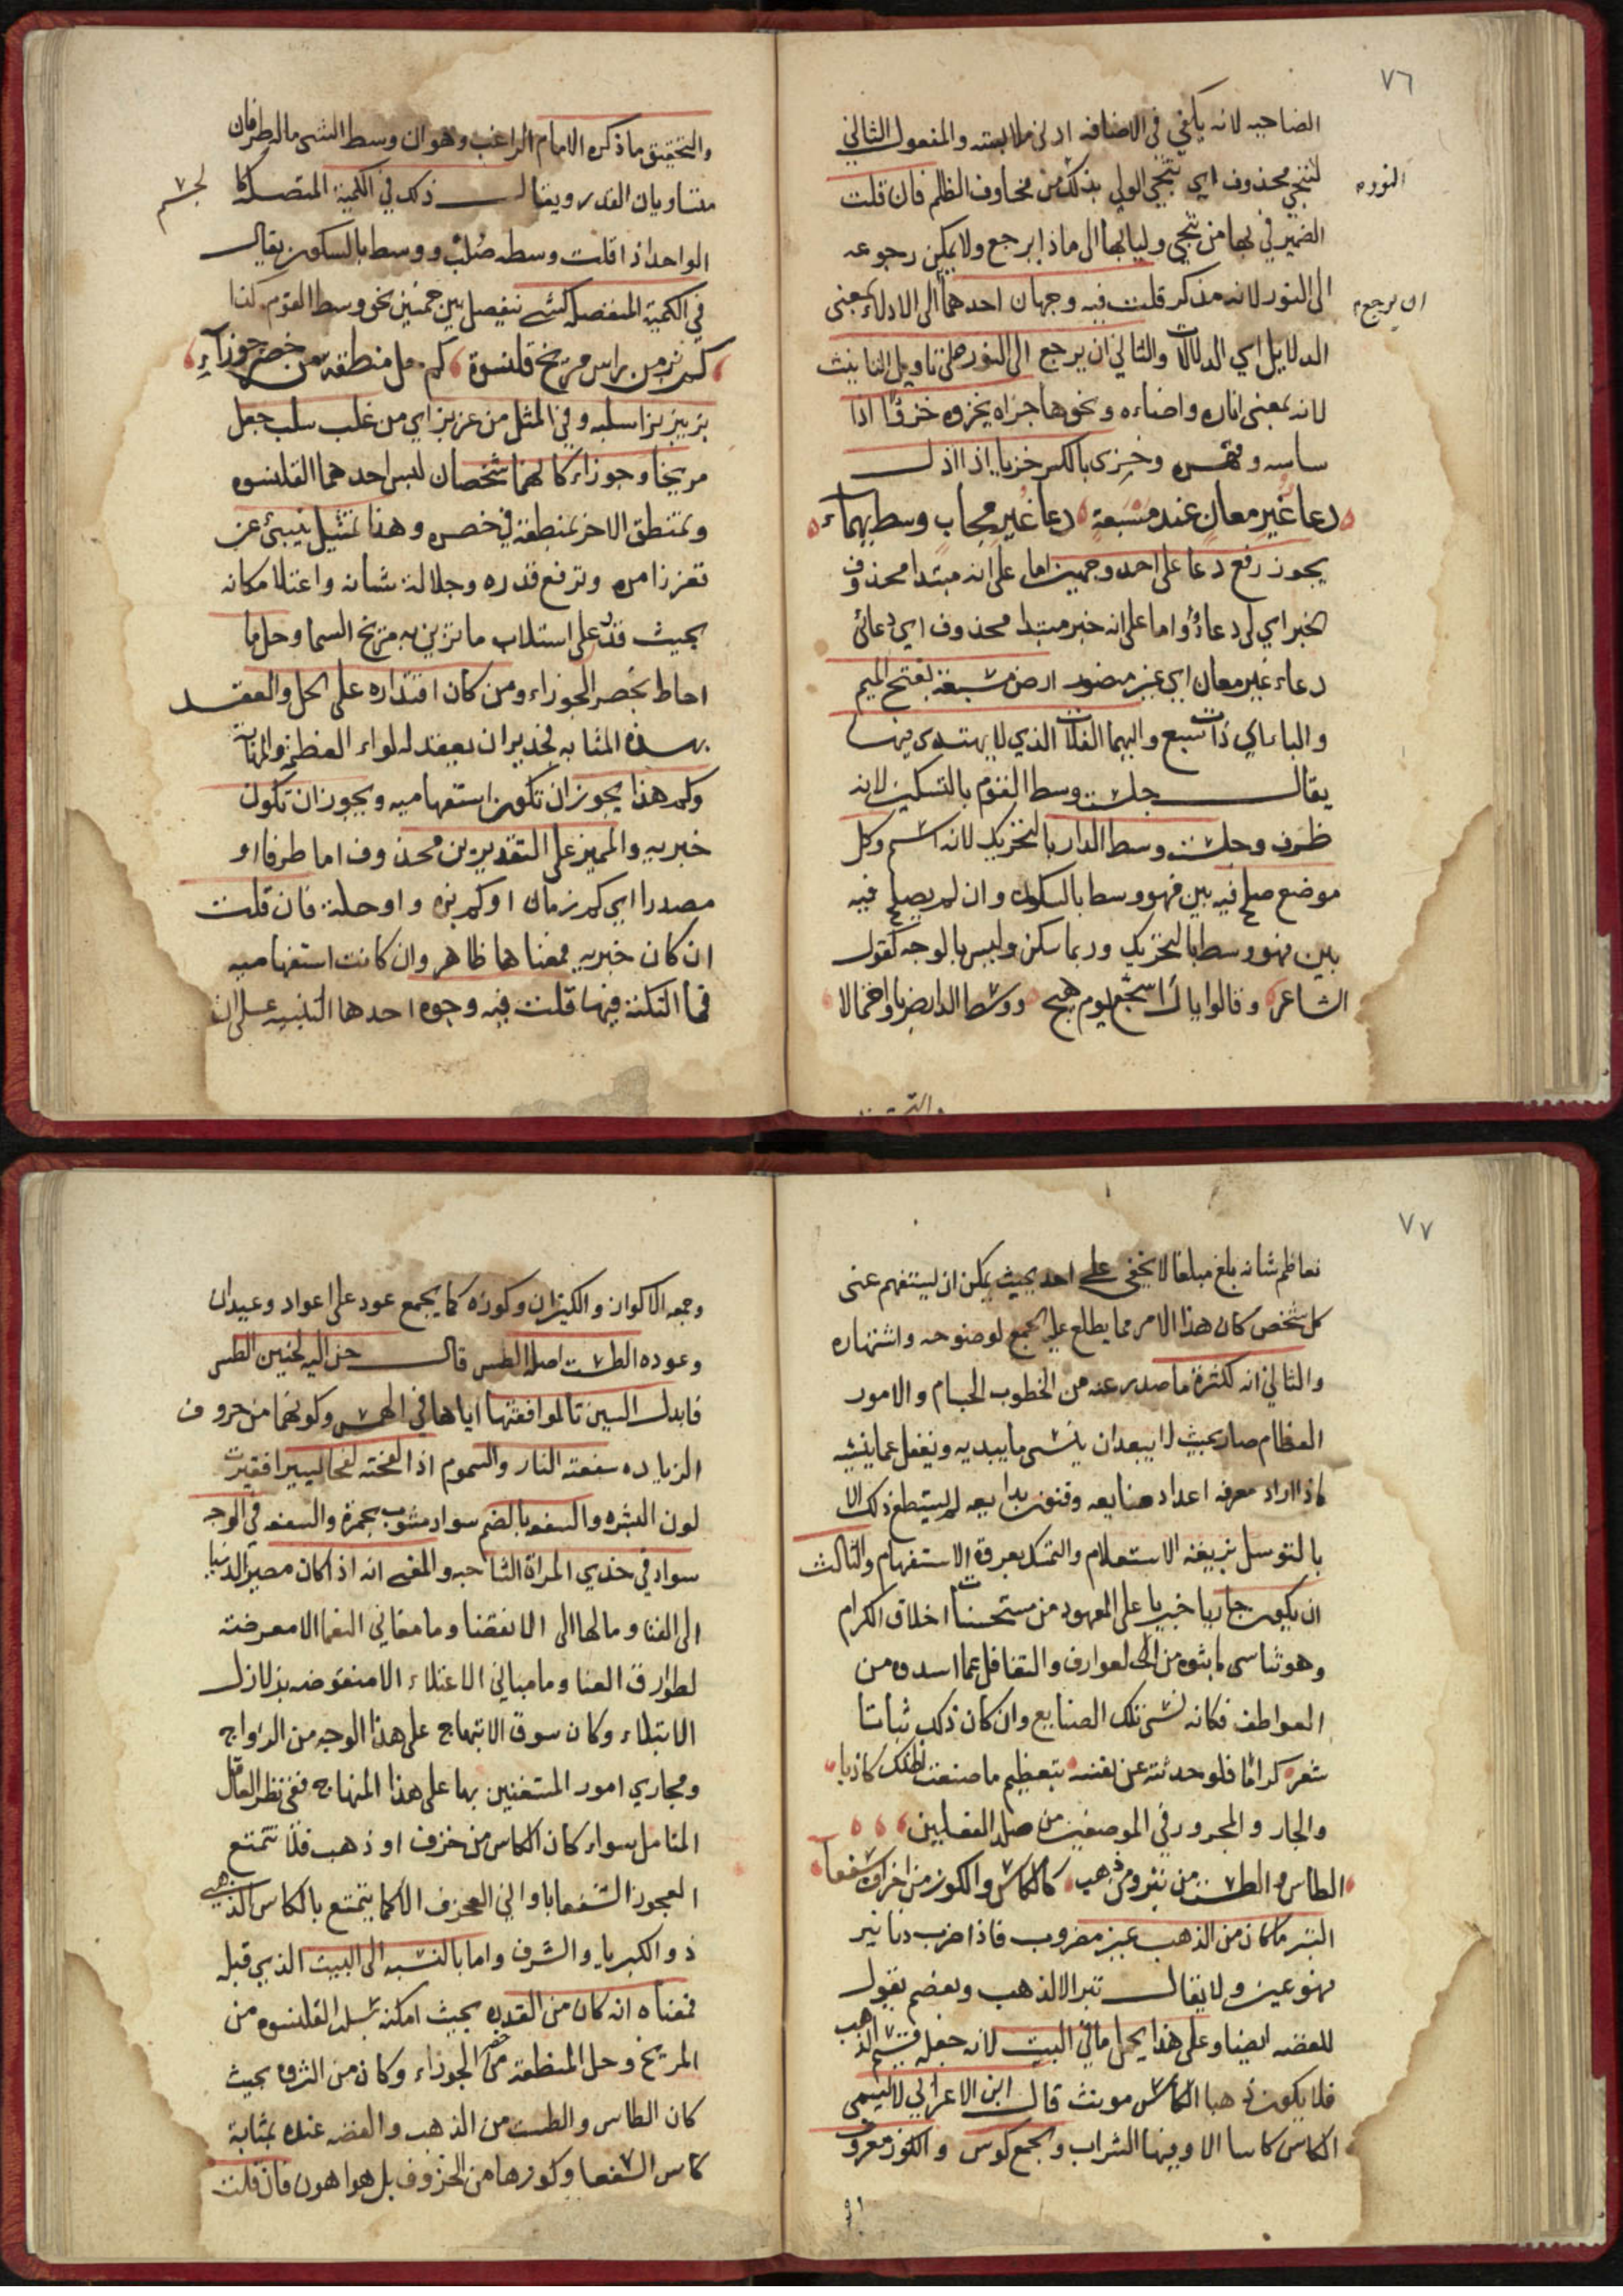 ٧٦
الصاحبه لانه يكفي في الاضافه ادنى ملابسته والمفعول الثاني
لننجي محذوف اي تنجي الولي بذلك من مخاوف الظلم فان قلت
النوره
الضمير في بها من تنجي ولياليها الى ماذا يرجع ولا يمكن رجوعه
الى النور لانه مذكر قلت فيه وجهان احدهما الى الادلاء بمعنى
ان يرجع م
الدلايل اي الدلالات والثاني ان يرجع الى النور على تاويل التانيث
لانه بمعنى اناره واضاءه ونحوها جزاه يخزوه خزوا اذا
ساسه وقهره وخزى بالكسر خزيا اذا اذل
دعا غير معان عند مسبعة دعا غير مجاب وسط يهماء
يجوز رفع دعا على احد وجهين اما على انه مبتدا محذوف
الخبر اي لي دعاؤ واما على انه خبر مبتدا محذوف اي دعائي
دعاء غير معان اي غير منصور ارض مسبعة بفتح الميم
والباء اي ذات سبع واليهما الفلات الذي لا يهتدى فيها
يقال جلست وسط القوم بالتسكين لانه
ظرف وجلست وسط الدار بالتحريك لانه اسم وكل
موضع صلح فيه بين فهو وسط بالسكون وان لم يصلح فيه
بين فهو وسط بالتحريك وربما سكن وليس بالوجه كقول
الشاعر وقالوا يال اشجع يوم هيج ووسط الدار ضربا واحتمالا
والتحقيق ما ذكره الامام الراغب وهو ان وسط الشي ماله طرفان
متساويان القدر ويقال ذلك في الكمية المتصلة كا
لجسم
الواحد اذا قلت وسطه صلب ووسط بالسكون يقال
في الكمية المنفصله كشي يفصل بين جسمين نحو وسط القوم كذا
كم بز من راس مريخ قلنسوة كم حل منطقة من خصر جوزآء
بز يبز بزا سلبه وفي المثل من عز بز اي من غلب سلب جعل
مريخا وجوزاء كا لهما شخصان لبس احدهما القلنسوه
وتمنطق الاخر بمنطقة في خصره وهذا تمثيل ينبئ عن
تعزز امره وترفع قدره وجلالة شانه واعتلا مكانه
بحيث قدر على استلاب ما تزين به مريخ السما وحل ما
احاط بخصر الجوزاء ومن كان اقتداره على الحل والعقد
بهذه المثابه فجدير ان يعقد له لواء العظمة والمهابة
وكم هذا يجوز ان تكون استفهاميه ويجوز ان تكون
خبريه والمميز على التقديرين محذوف اما ظرفا او
مصدرا اي كم زمان او كم بزه و او حلة فان قلت
ان كان خبريه فمعناها ظاهر وان كانت استفهاميه
فما النكتة فيها قلت فيه وجوه احدها التنبيه على ان
٧٧
تعاظم شانه بلغ مبلغا لا يخفى على احد بحيث يمكن ان يستفهم عنى
كل شخص كان هذا الامر مما يطلع عليه الجميع لوضوحه واشتهاره
والثاني انه لكثرة ما صدر عنه من الخطوب الجسام والامور
العظام صار بحيث لا يبعد ان ينسى ما يبديه ويغفل عما ينشيه
فاذا اراد معرفه اعداد صنايعه وفنون بدايعه لم يستطع ذلك الا
بالتوسل بذريعة الاستعلام والتمسك بعروة الاستفهام والثالث
ان يكون جاريا خبريا على المعهود من مستحسنات اخلاق الكرام
وهو تناسى ما بثوه من العوارف والتغافل عما اسدوه من
العواطف فكانه نسى تلك الصنايع وان كان ذلك ثباتا
شعر كراما فلو حدثته عن نفسه بتعظيم ما صنعت لظنك كاذبا
والجار والمجرور في الموضعين من صلة الفعلين
الطاس والطست من تبر ومن ذهب كالكاس والكوز من اخزاف سفعآء
التبر ما كان من الذهب غير مضروب فاذا ضرب دنانير
فهو عين ولا يقال تبر الا للذهب وبعضهم يقول
للفضه ايضا وعلى هذا يحمل ما في البيت لانه جعله قسيم الذهب
فلا يكون ذهبا الكاس مونث قال ابن الاعرابي لا تسمى
الكاس كاسا الا وفيها الشراب والجمع كوس والكوز معروف
وجمعه الاكواز والكيزان وكوزه كما يجمع عود على اعواد وعيدان
وعوده الطست اصله الطس قال حن اليه كحنين الطس
فابدل السين تا لموافقتها اياها في الهمس وكونهما من حروف
الزياده سفعته النار والسموم اذا لفحته لفحا يسيرا فغيرت
لون البشره والسفعه بالضم سواد مشوب بحمرة والسفعه في الوجه
سواد في خدي المراة الشاحبه والمعنى انه اذا كان مصير الدنيا
الى الفنا ومالها الى الانقضا وما مغاني النعما الا معرضة
لطوارق العنا وما مباني الاعتلاء الا منقوضه بزلازل
الابتلاء وكان سوق الابتهاج على هذا الوجه من الرواج
ومجاري امور المستغنين بها على هذا المنهاج ففي نظر العاقل
المتامل سواء كان الكاس من خزف او ذهب فلا تتمتع
العجوز السفعا باواني الخزف الا كما يتمتع بالكاس الذهبي
ذو الكبرياء والشرف واما بالنسبه الى البيت الذي قبله
فمعناه انه كان من القدره بحيث امكنه سلب القلنسوه من
المريخ وحل المنطقة من خصر الجوزاء وكان من الثروه بحيث
كان الطاس والطست من الذهب والفضه عنده بمثابة
كاس السفعا وكوزها من الخزف بل هوا هون فان قلت